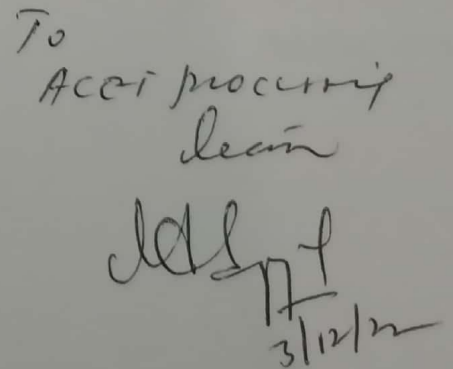 To
Acct processing
team
3/12/22